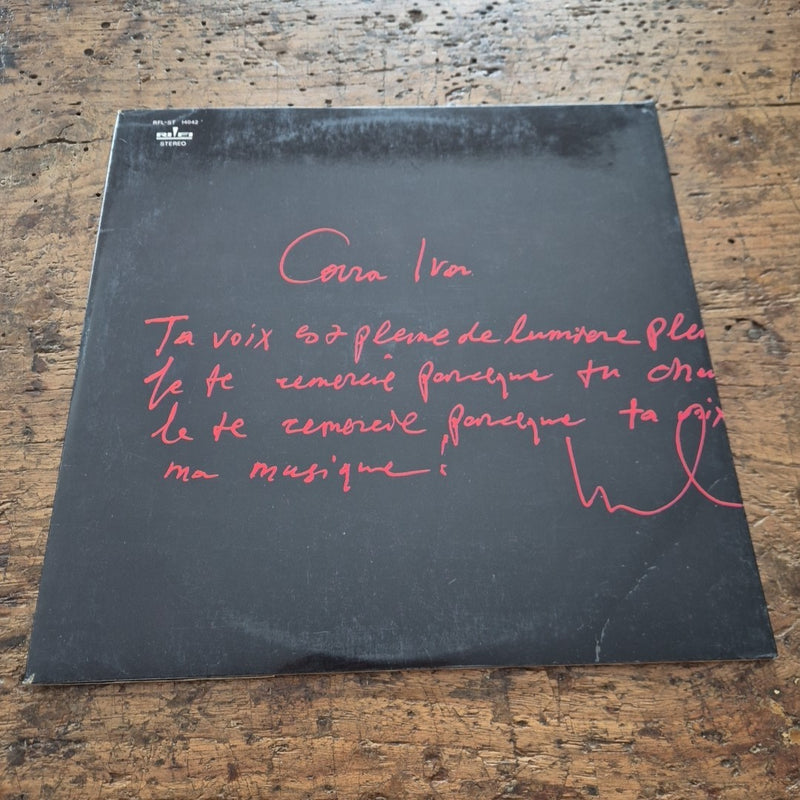 RFL-ST 14042
RIFI
STEREO
Cara Iva
Ta voix est pleine de lumiere
Je te remercie parceque tu
Je te remercie parceque ta voix
ma musique!